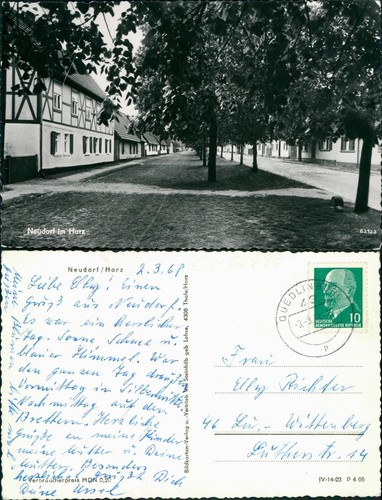 Neudorf im Harz
Neudorf/Harz
2.3.68
Liebe Elly! Einen
Gruß aus Neudorf.
Es war ein herrlicher
Tag. Sonne, Schnee u.
blauer Himmel. War
den ganzen Tag draußen
Vormittag in
Nachmittag auf den
Brettern. Herzliche
Grüße an meine Kinder
meine Mutter u. Deine
Mutter. Besonders
herzlich grüßt Dich
Deine Ursel
Verbraucherpreis MDN 0,20
Bildkarten-Verlag u. Vertrieb
Lehne, 4308 Thale/Harz
QUEDLINBURG
10
DEUTSCHE
DEMOKRATISCHE REPUBLIK
Frau
Elly Richter
46 Lu.-Wittenberg
Lutherstr. 14
IV-14-23 D 4 66